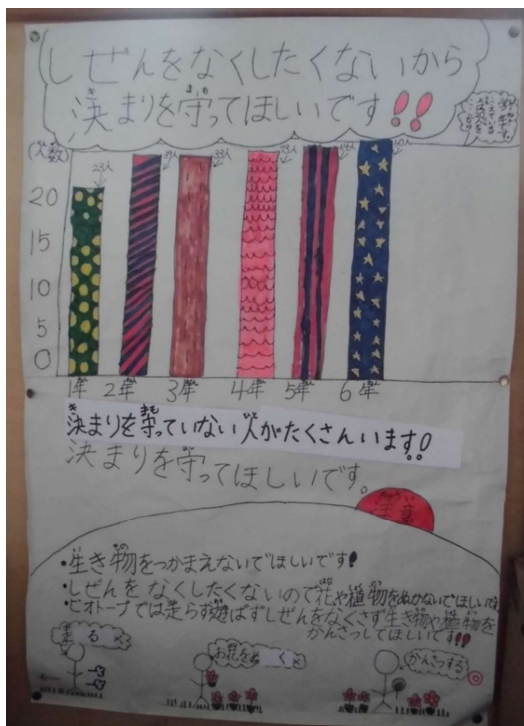 しぜんをなくしたくないから
決まりを守ってほしいです!!
(人数)
20
15
10
5
0
23人
33人
1年 2年 3年 4年 5年 6年
決まりを守っていない人がたくさんいます!!
決まりを守ってほしいです。
注意
・生き物をつかまえないでほしいです!
・しぜんをなくしたくないので花や植物をぬかないでほしいです
・ビオトープでは走らず遊ばずしぜんをなくさず生き物や植物を
かんさつしてほしいです!!
走る×
お花をぬく×
かんさつする◎